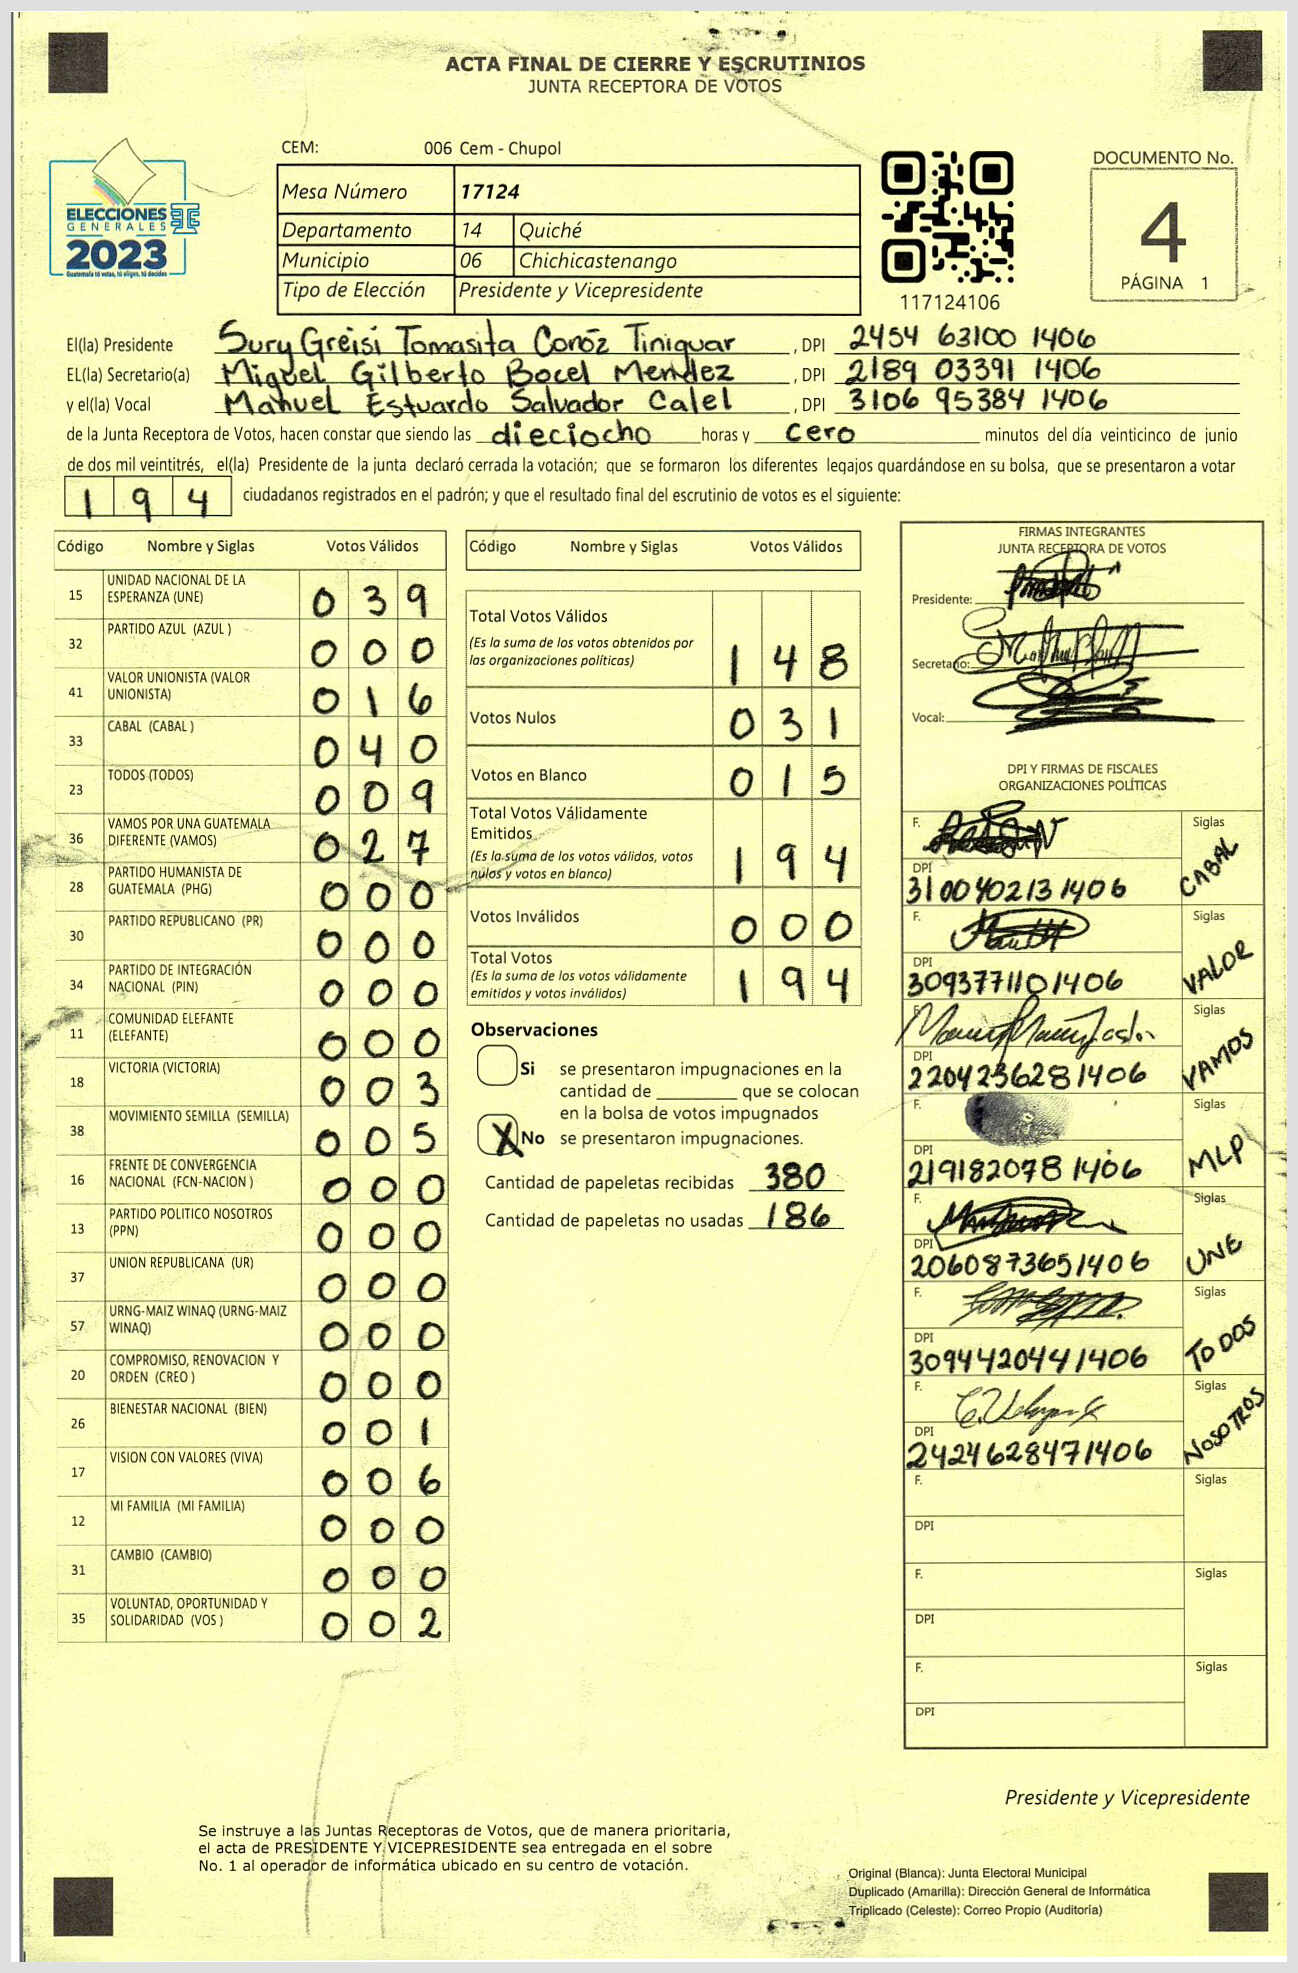 ACTA FINAL DE CIERRE Y ESCRUTINIOS
JUNTA RECEPTORA DE VOTOS
ELECCIONES
GENERALES
2023
Guatemala tú votas, tú eliges, tú decides
CEM: 006 Cem - Chupol
Mesa Número 17124
Departamento 14 Quiché
Municipio 06 Chichicastenango
Tipo de Elección Presidente y Vicepresidente
117124106
DOCUMENTO No.
4
PÁGINA 1
El(la) Presidente Sury Greisi Tomasita Conóz Tiniguar, DPI 2454 63100 1406
EL(la) Secretario(a) Miguel Gilberto Bocel Mendez, DPI 2189 03391 1406
y el(la) Vocal Manuel Estuardo Salvador Calel, DPI 3106 95384 1406
de la Junta Receptora de Votos, hacen constar que siendo las dieciocho horas y cero minutos del día veinticinco de junio
de dos mil veintitrés, el(la) Presidente de la junta declaró cerrada la votación; que se formaron los diferentes legajos quardándose en su bolsa, que se presentaron a votar
194 ciudadanos registrados en el padrón; y que el resultado final del escrutinio de votos es el siguiente:
Código Nombre y Siglas Votos Válidos
15 UNIDAD NACIONAL DE LA ESPERANZA (UNE) 039
32 PARTIDO AZUL (AZUL ) 000
41 VALOR UNIONISTA (VALOR UNIONISTA) 016
33 CABAL (CABAL ) 040
23 TODOS (TODOS) 009
36 VAMOS POR UNA GUATEMALA DIFERENTE (VAMOS) 027
28 PARTIDO HUMANISTA DE GUATEMALA (PHG) 000
30 PARTIDO REPUBLICANO (PR) 000
34 PARTIDO DE INTEGRACIÓN NACIONAL (PIN) 000
11 COMUNIDAD ELEFANTE (ELEFANTE) 000
18 VICTORIA (VICTORIA) 003
38 MOVIMIENTO SEMILLA (SEMILLA) 005
16 FRENTE DE CONVERGENCIA NACIONAL (FCN-NACION ) 000
13 PARTIDO POLITICO NOSOTROS (PPN) 000
37 UNION REPUBLICANA (UR) 000
57 URNG-MAIZ WINAQ (URNG-MAIZ WINAQ) 000
20 COMPROMISO, RENOVACION Y ORDEN (CREO ) 000
26 BIENESTAR NACIONAL (BIEN) 001
17 VISION CON VALORES (VIVA) 006
12 MI FAMILIA (MI FAMILIA) 000
31 CAMBIO (CAMBIO) 000
35 VOLUNTAD, OPORTUNIDAD Y SOLIDARIDAD (VOS ) 002
Código Nombre y Siglas Votos Válidos
Total Votos Válidos
(Es la suma de los votos obtenidos por
las organizaciones políticas) 148
Votos Nulos 031
Votos en Blanco 015
Total Votos Válidamente
Emitidos
(Es la suma de los votos válidos, votos
nulos y votos en blanco) 194
Votos Inválidos 000
Total Votos
(Es la suma de los votos válidamente
emitidos y votos inválidos) 194
Observaciones
Si se presentaron impugnaciones en la
cantidad de ________ que se colocan
en la bolsa de votos impugnados
X No se presentaron impugnaciones.
Cantidad de papeletas recibidas 380
Cantidad de papeletas no usadas 186
FIRMAS INTEGRANTES
JUNTA RECEPTORA DE VOTOS
Presidente:
Secretario:
Vocal:
DPI Y FIRMAS DE FISCALES
ORGANIZACIONES POLÍTICAS
F. Siglas CABAL
DPI 3100402131406
F. Siglas VALOR
DPI 3093771101406
F. Siglas VAMOS
DPI 2204236281406
F. Siglas MLP
DPI 2191820781406
F. Siglas UNE
DPI 2060873651406
F. Siglas TODOS
DPI 3094420441406
F. Siglas NOSOTROS
DPI 2424628471406
F. Siglas
DPI
F. Siglas
DPI
F. Siglas
DPI
Presidente y Vicepresidente
Se instruye a las Juntas Receptoras de Votos, que de manera prioritaria,
el acta de PRESIDENTE Y VICEPRESIDENTE sea entregada en el sobre
No. 1 al operador de informática ubicado en su centro de votación.
Original (Blanca): Junta Electoral Municipal
Duplicado (Amarilla): Dirección General de Informática
Triplicado (Celeste): Correo Propio (Auditoría)